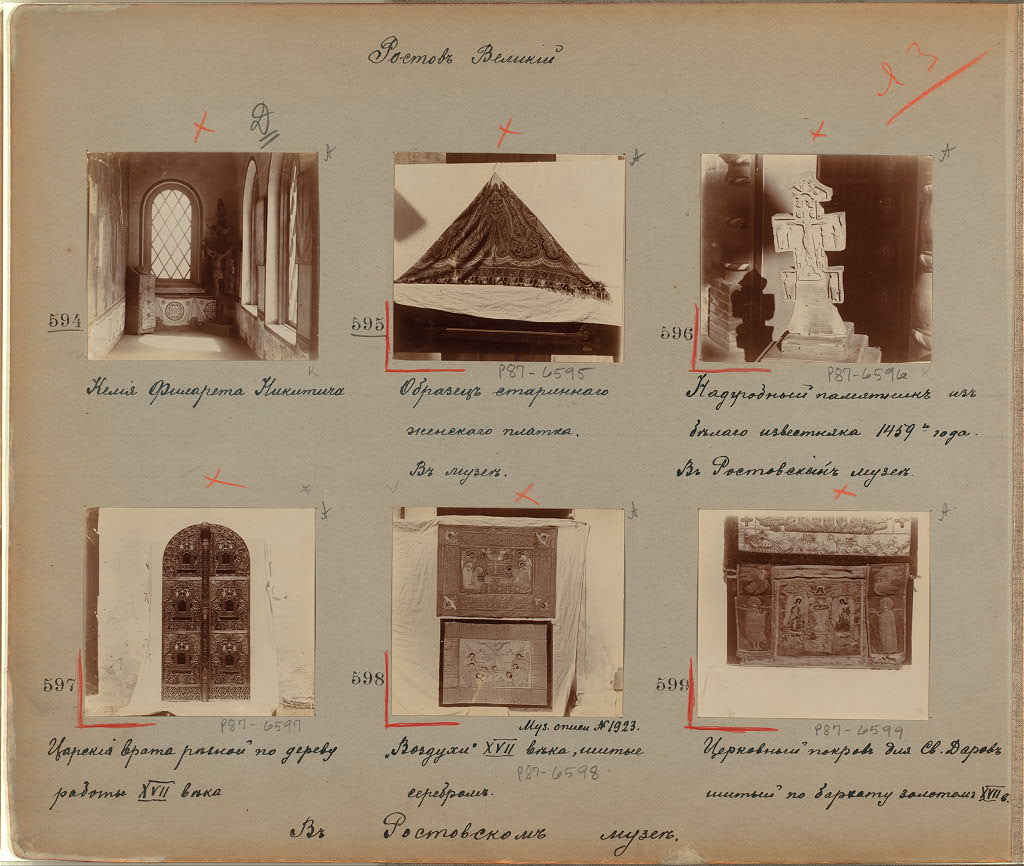 Ростовъ Великій
Я 3
Д
А
А
А
594
595
596
К
P87-6595
P87-6596 К
Келія Филарета Никитича
Образецъ стариннаго
женскаго платка.
Въ музеѣ.
Надгробный памятникъ изъ
бѣлаго известняка 1459 г. года.
Въ Ростовскомъ музеѣ.
А
А
А
597
598
599
P87-6597
Муз. описи № 1923.
P87-6599
Царскія врата рѣзной по дереву
работы XVII вѣка
„Воздухи“ XVII вѣка, шитые
P87-6598
серебромъ.
Церковный покровъ для Св. Даровъ
шитый по бархату золотомъ XVII в.
Въ Ростовскомъ музеѣ.